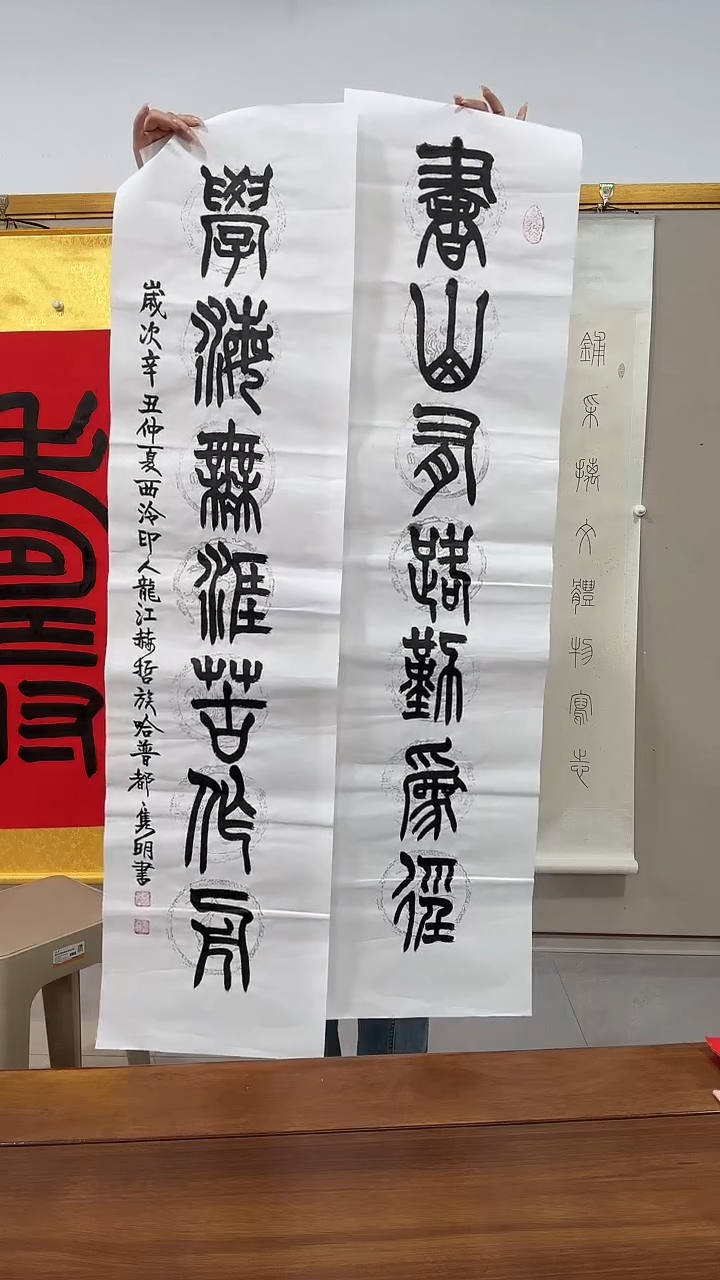 書山有路勤為徑
學海無涯苦作舟
歲次辛丑仲夏西泠印人龍江赫哲族哈普都隽明書
鋪采摛文體物寫志